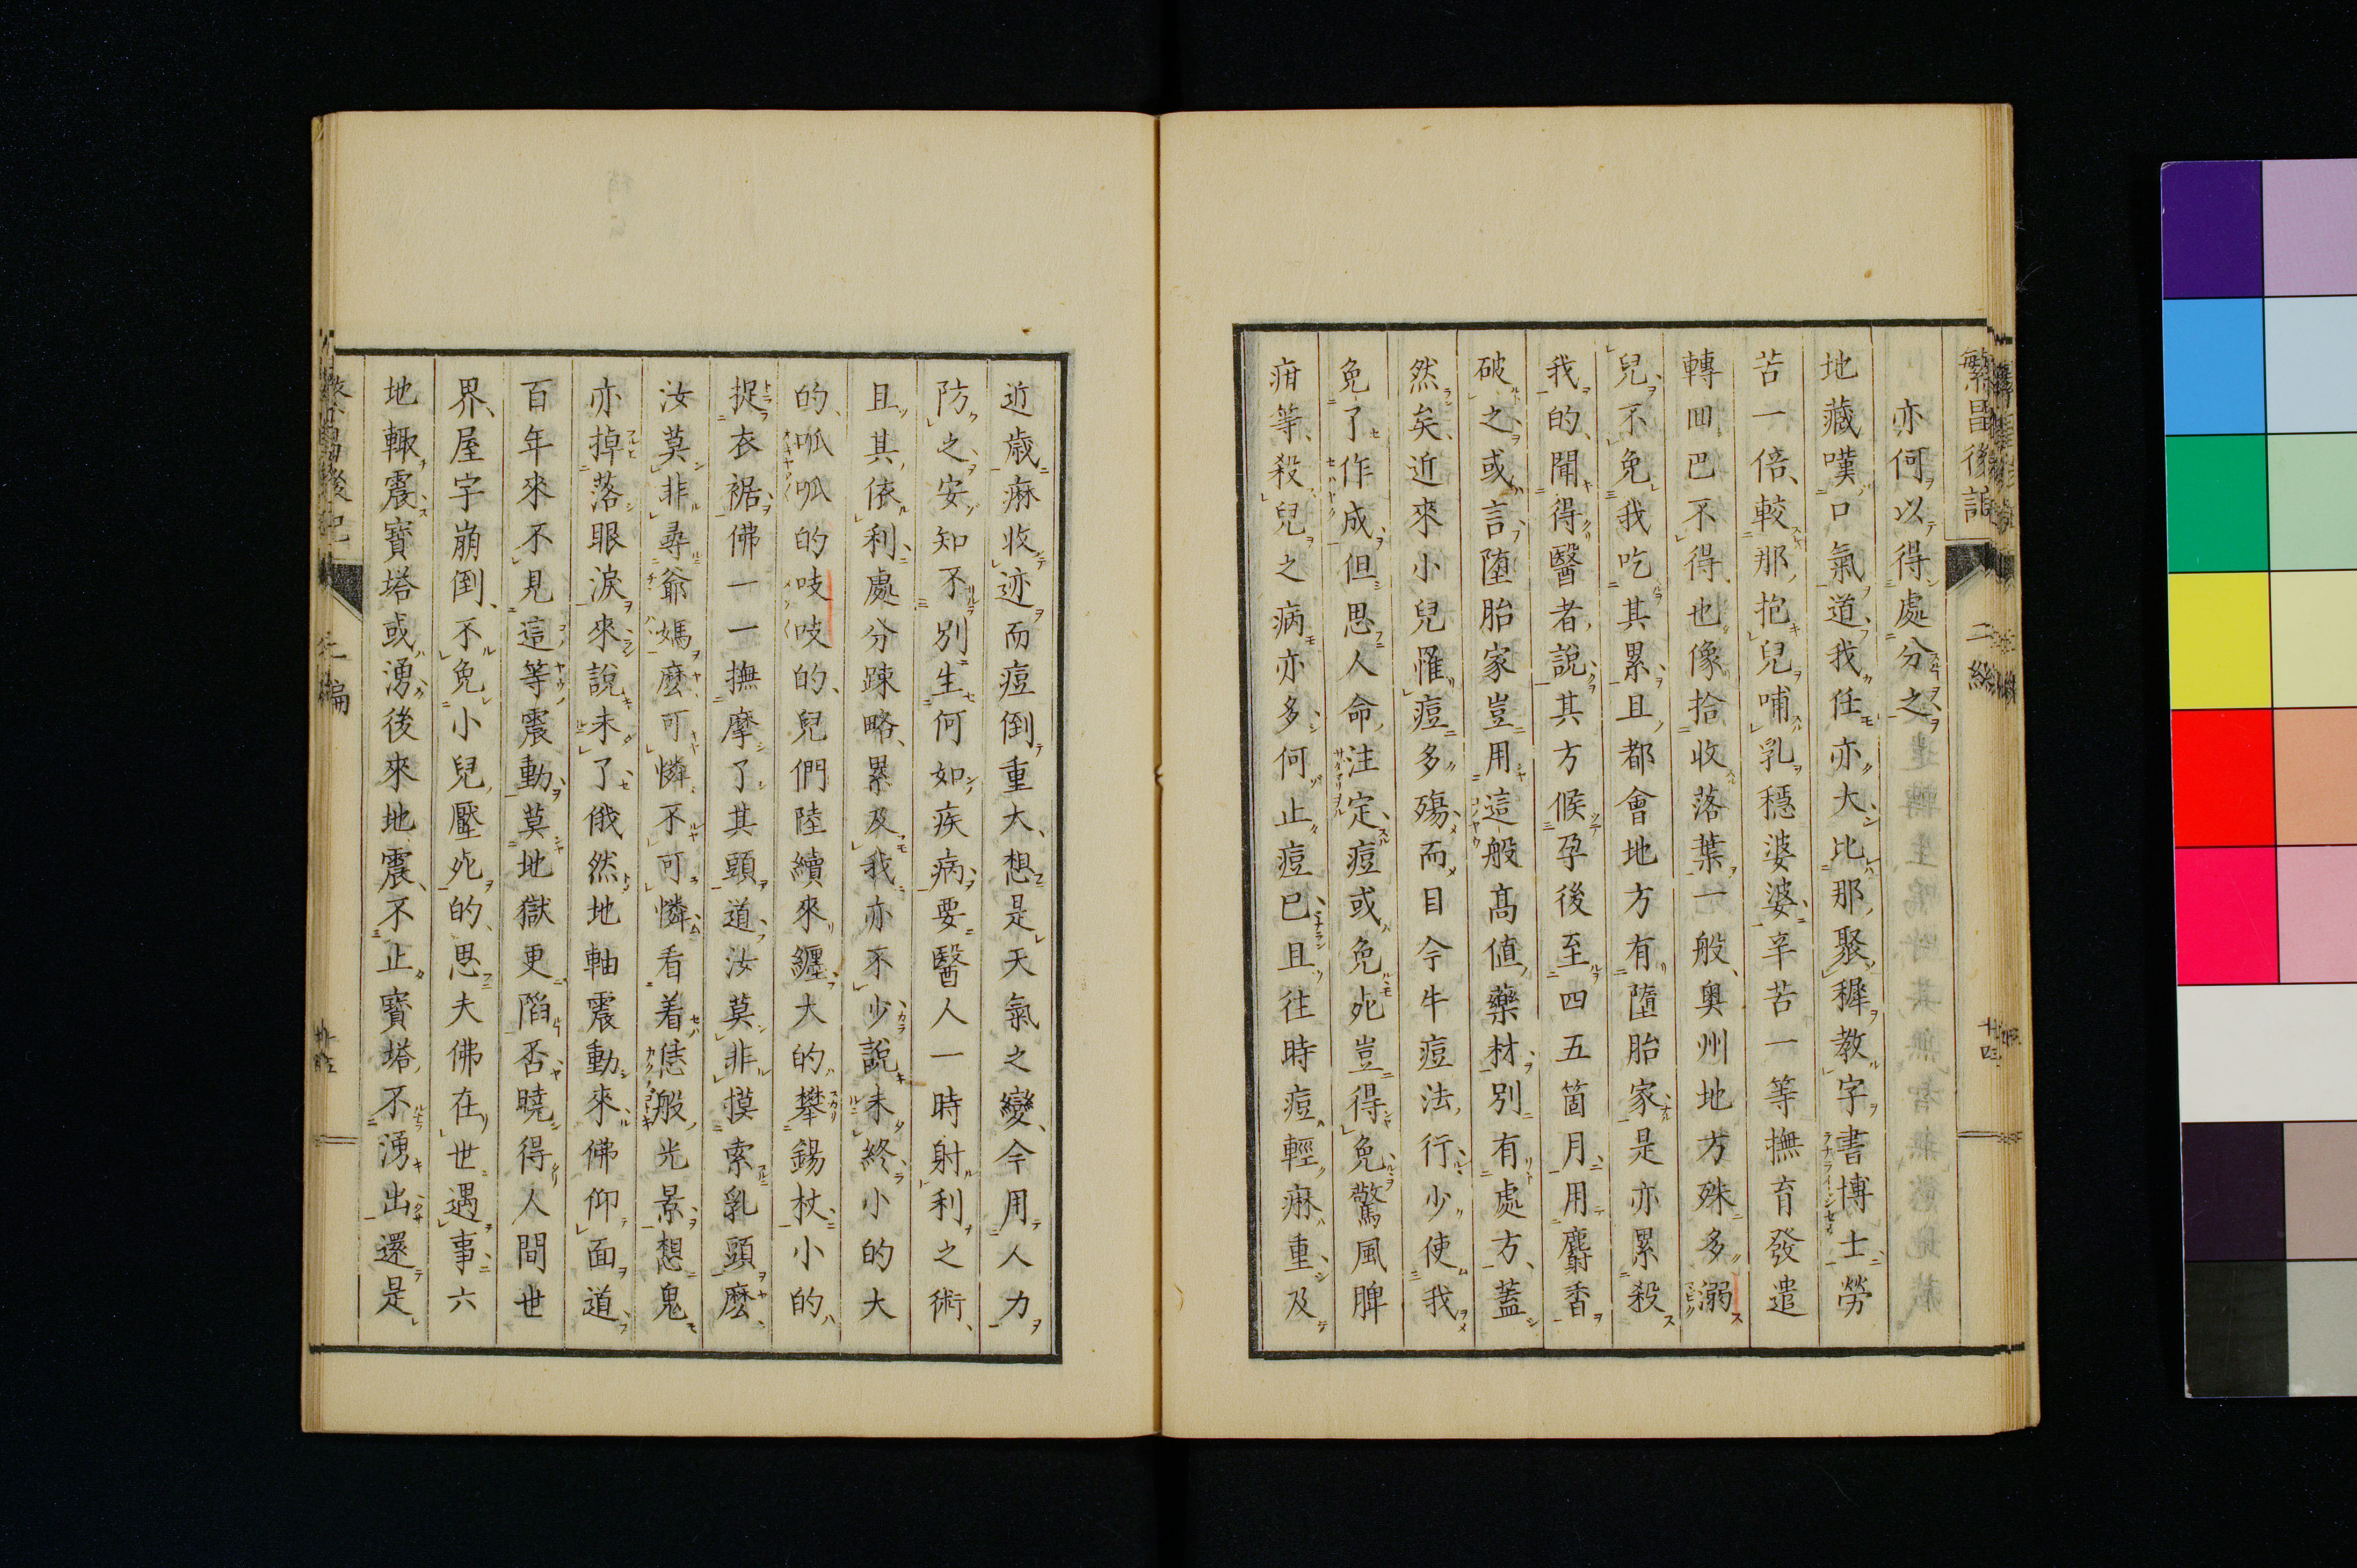 亦何以得處分之
地藏嘆口氣道我任亦大比那聚穉教字書博士勞
苦一倍、較那抱兒哺乳穩婆婆辛苦一等撫育發遣
轉回巴不得也像拾收落葉一般、奧州地方殊多溺
兒、不免我吃其累、且都會地方有墮胎家是亦累殺
我的、聞得醫者說其方候孕後至四五箇月用麝香
破之或言墮胎家豈用這般高値藥材別有處方、蓋
然矣、近來小兒罹痘多殤、而目今牛痘法行少使我
免了作成但思人命注定痘或免死豈得免驚風脾
疳等、殺兒之病亦多何止痘已且往時痘輕痳重及
近歲痳收迹而痘倒重大、想是天氣之變、今用人力
防之安知不別生何如疾病要醫人一時射利之術、
且其依利處分踈略、累及我亦不少說未終小的大
的、呱呱的吱吱的、兒們陸續來纏大的攀錫杖小的
捉衣裾佛一一撫摩了其頭道汝莫非摸索乳頭麽、
汝莫非尋爺媽麽可憐不可憐看着恁般光景想鬼
亦掉落眼淚來說未了俄然地軸震動來佛仰面道
百年來不見這等震動莫地獄更陷否曉得人間世
界、屋宇崩倒、不免小兒壓死的、思夫佛在世遇事六
地輙震寶塔或湧後來地震、不止寶塔不湧出還是
繁昌後記
二編